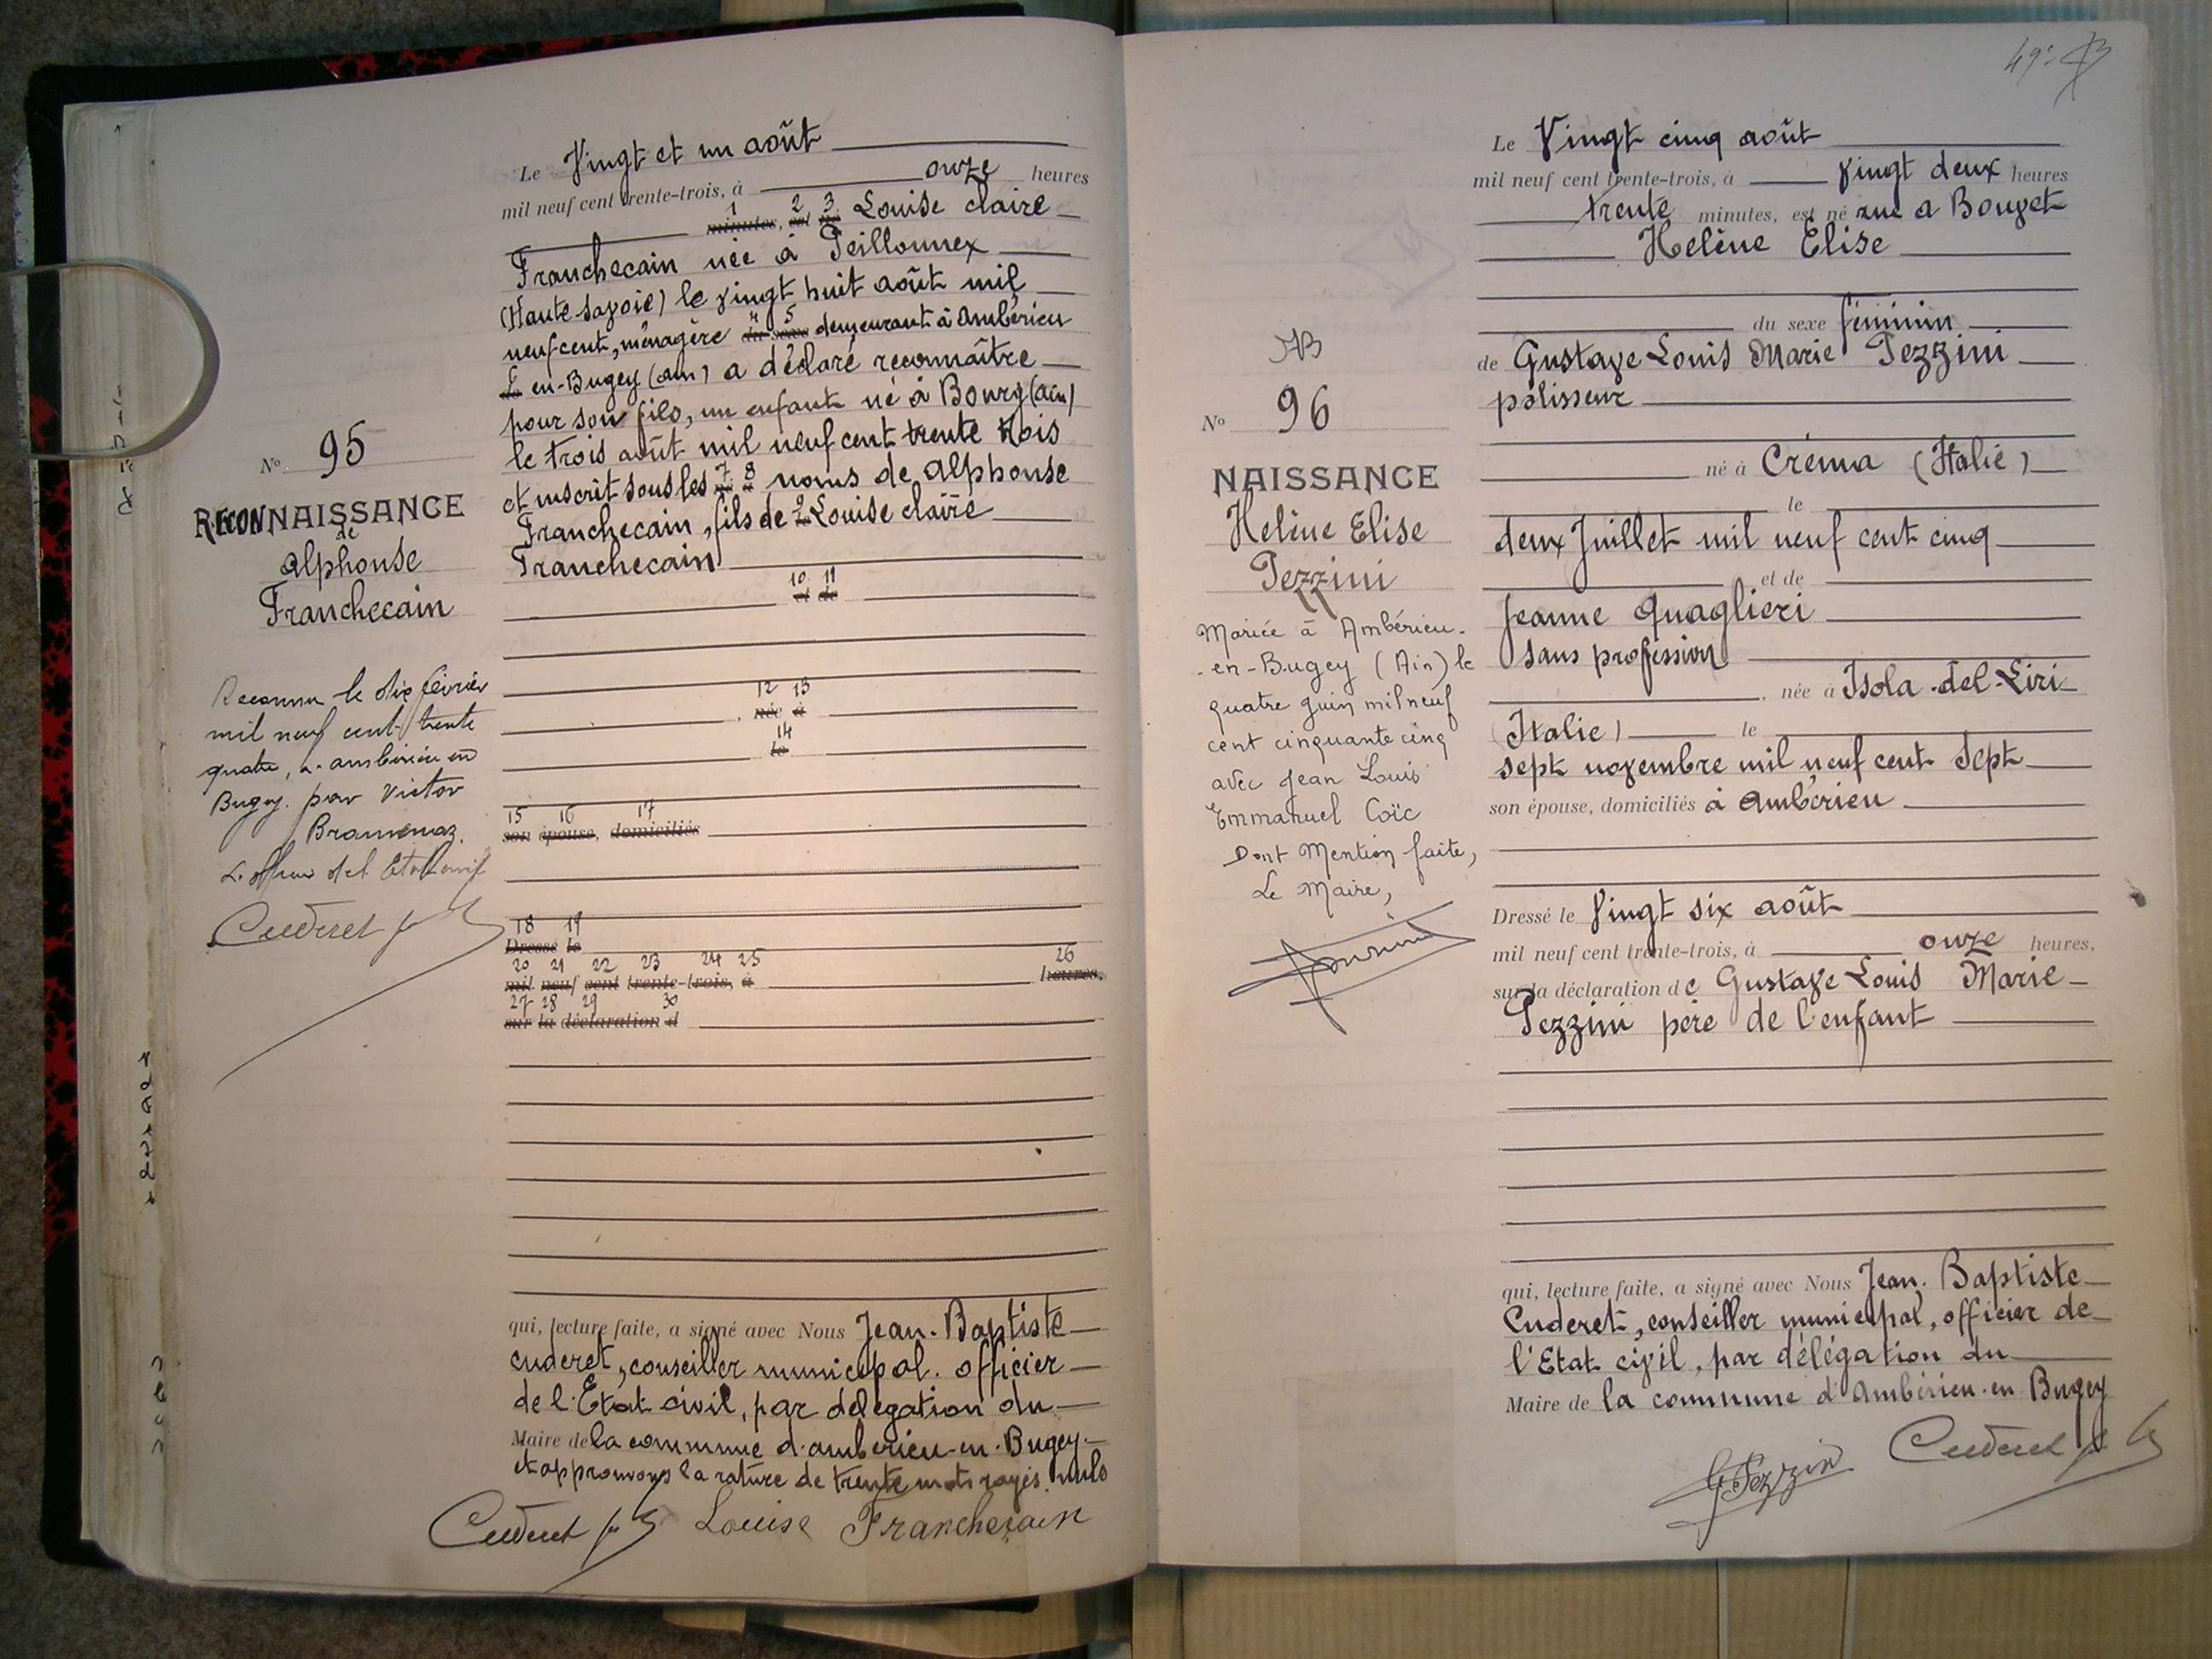 Le Vingt et un août
mil neuf cent trente-trois, à onze heures
1 2 3
minutes, est né Louise claire
Franchecain née à Peillonnex
(Haute Savoie) le vingt huit août mil
4 5
neuf cent, ménagère du sexe demeurant à Ambérieu
en-Bugey (ain) a déclaré reconnaître
pour son fils, un enfant né à Bourg (ain)
le trois août mil neuf cent trente trois
et inscrit sous les 7 8 noms de Alphonse
Franchecain, fils de 9 Louise claire
Franchecain
10 11
et de
12 13
, née à
14
le
15 16 17
son épouse, domiciliés
18 19
Dressé le
20 21 22 23 24 25 26
mil neuf cent trente-trois, à heures,
27 28 29 30
sur la déclaration d
qui, lecture faite, a signé avec Nous Jean-Baptiste
Cuderet, conseiller municipal. officier
de l'Etat civil, par délégation du
Maire de la commune d'ambérieu-en-Bugey
et approuvons la rature de trente mots rayés nuls
Cuderet Louise Franchecain
No 95
RECONNAISSANCE
de
Alphonse
Franchecain
Reconnu le dix février
mil neuf cent trente
quatre, à ambérieu en
Bugey. par Victor
Bramenaz.
L'officier de l'Etat civil
Cuderet
49
Le Vingt cinq août
mil neuf cent trente-trois, à vingt deux heures
trente minutes, est né rue a Bouvet
Helène Elise
du sexe féminin
de Gustave Louis Marie Pezzini
polisseur
né à Créma (Italie)
le
deux Juillet mil neuf cent cinq
et de
Jeanne Quaglieri
sans profession
, née à Isola-del-Liri
(Italie) le
sept novembre mil neuf cent sept
son épouse, domiciliés à Ambérieu
Dressé le Vingt six août
mil neuf cent trente-trois, à onze heures,
sur la déclaration de Gustave Louis Marie
Pezzini père de l'enfant
qui, lecture faite, a signé avec Nous Jean-Baptiste
Cuderet, conseiller municipal, officier de
l'Etat civil, par délégation du
Maire de la commune d'Ambérieu-en-Bugey
G Pezzini Cuderet
No 96
NAISSANCE
Helène Elise
Pezzini
Mariée à Ambérieu-
-en-Bugey (Ain) le
quatre juin mil neuf
cent cinquante cinq
avec Jean Louis
Emmanuel Coïc
Dont Mention faite,
Le Maire,